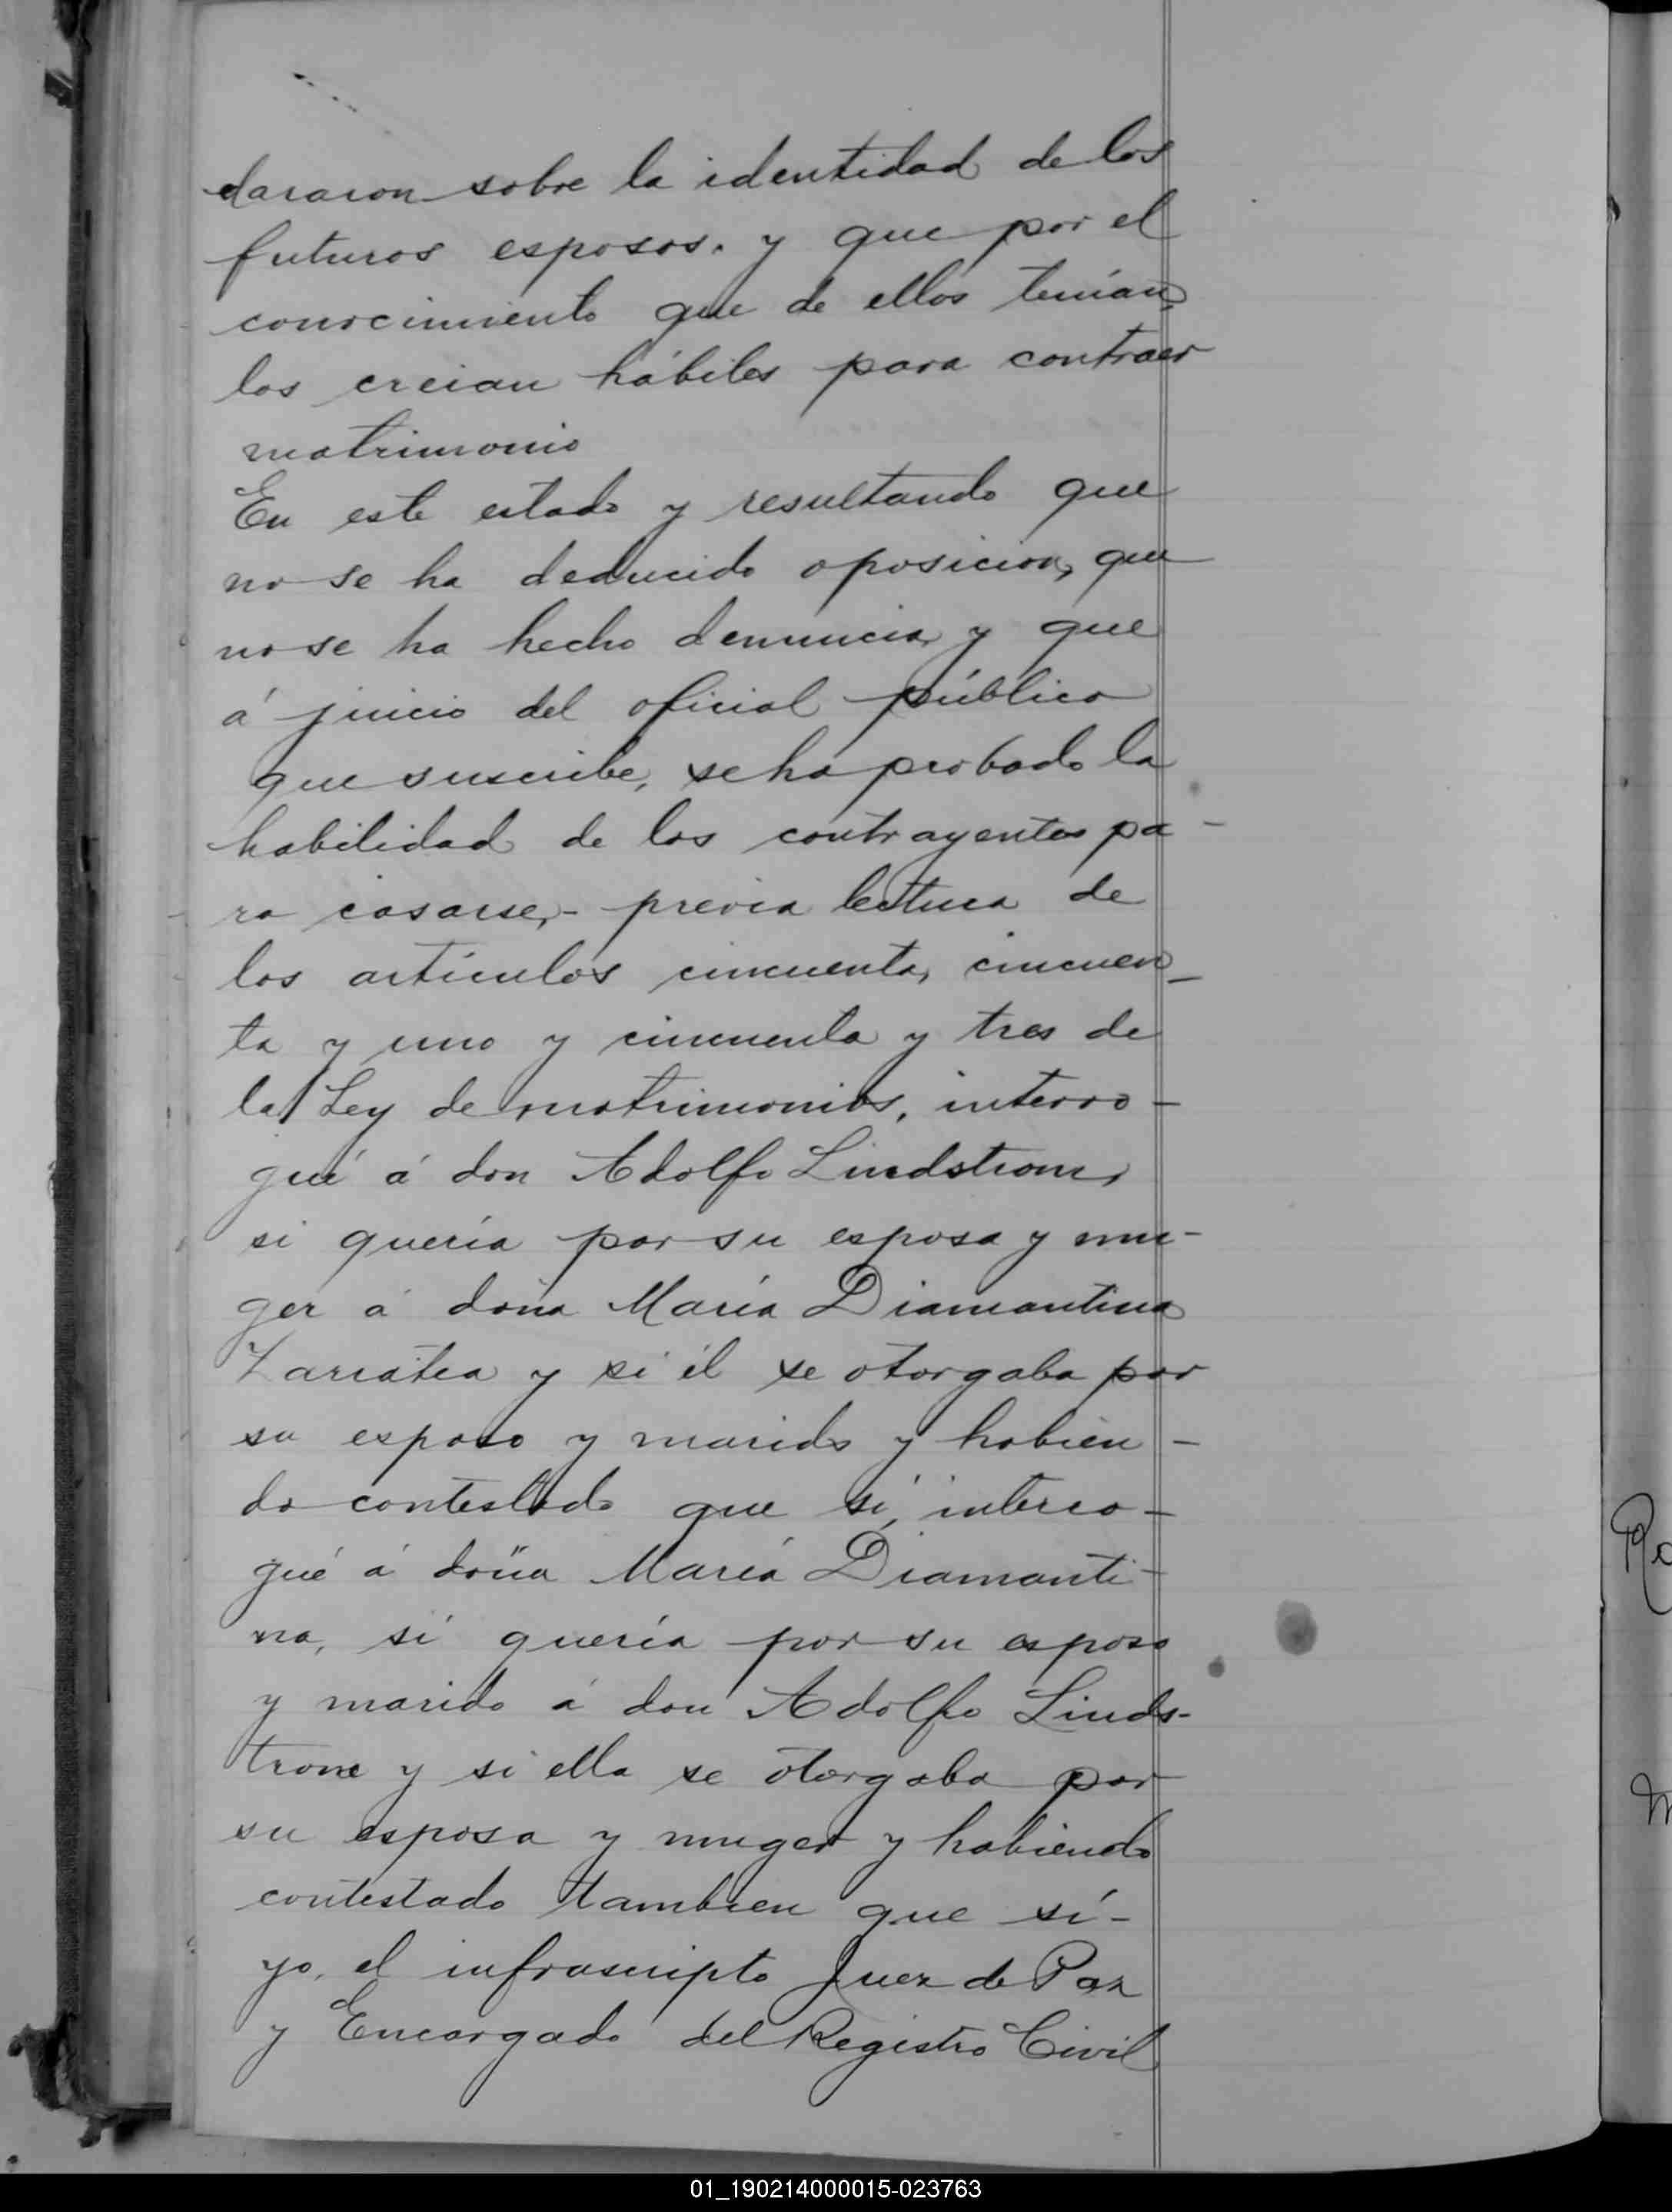 clararon sobre la identidad de los
futuros esposos. y que por el
conocimiento que de ellos tenían,
los creian hábiles para contraer
matrimonio
En este estado y resultando que
no se ha deducido oposicion, que
no se ha hecho denuncia y que
á juicio del oficial público
que suscribe, se ha probado la
habilidad de los contrayentes pa-
ra casarse,- previa lectura de
los artículos cincuenta, cincuen-
ta y uno y cincuenta y tres de
la Ley de matrimonios, interro-
gué á don Adolfo Lindstrom,
si quería por su esposa y mu-
ger á doña María Diamantina
Zariátea y si él se otorgaba por
su esposo y marido y habien-
do contestado que sí, interro-
gué á doña María Diamanti-
na, si quería por su esposo
y marido á don Adolfo Linds-
trom y si ella se otorgaba por
su esposa y muger y habiendo
contestado tambien que sí-
yo, el infrascripto Juez de Paz
y Encargado del Registro Civil
01_190214000015-023763